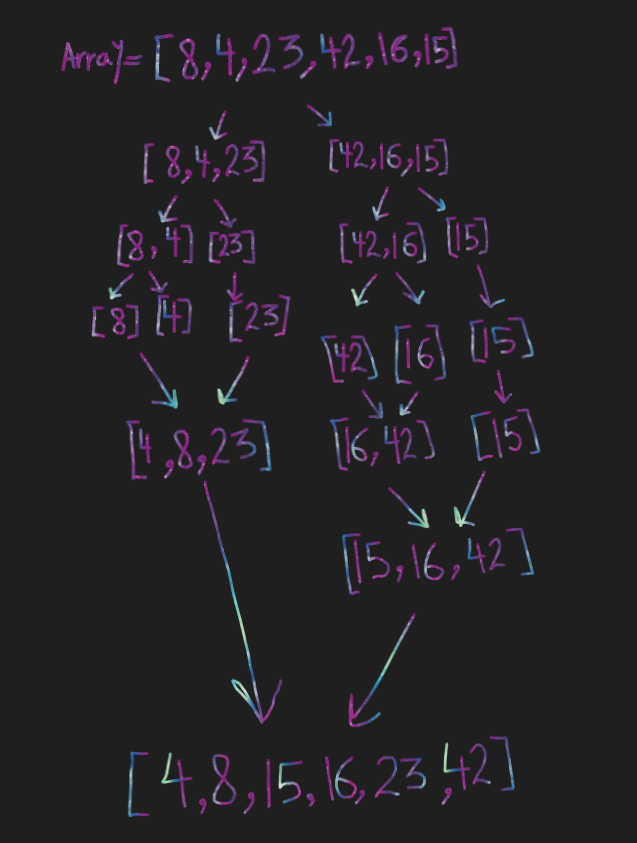 Array= [8,4,23,42,16,15]
[8,4,23] [42,16,15]
[8,4] [23] [42,16] [15]
[8] [4] [23] [42] [16] [15]
[4,8,23] [16,42] [15]
[15,16,42]
[4,8,15,16,23,42]